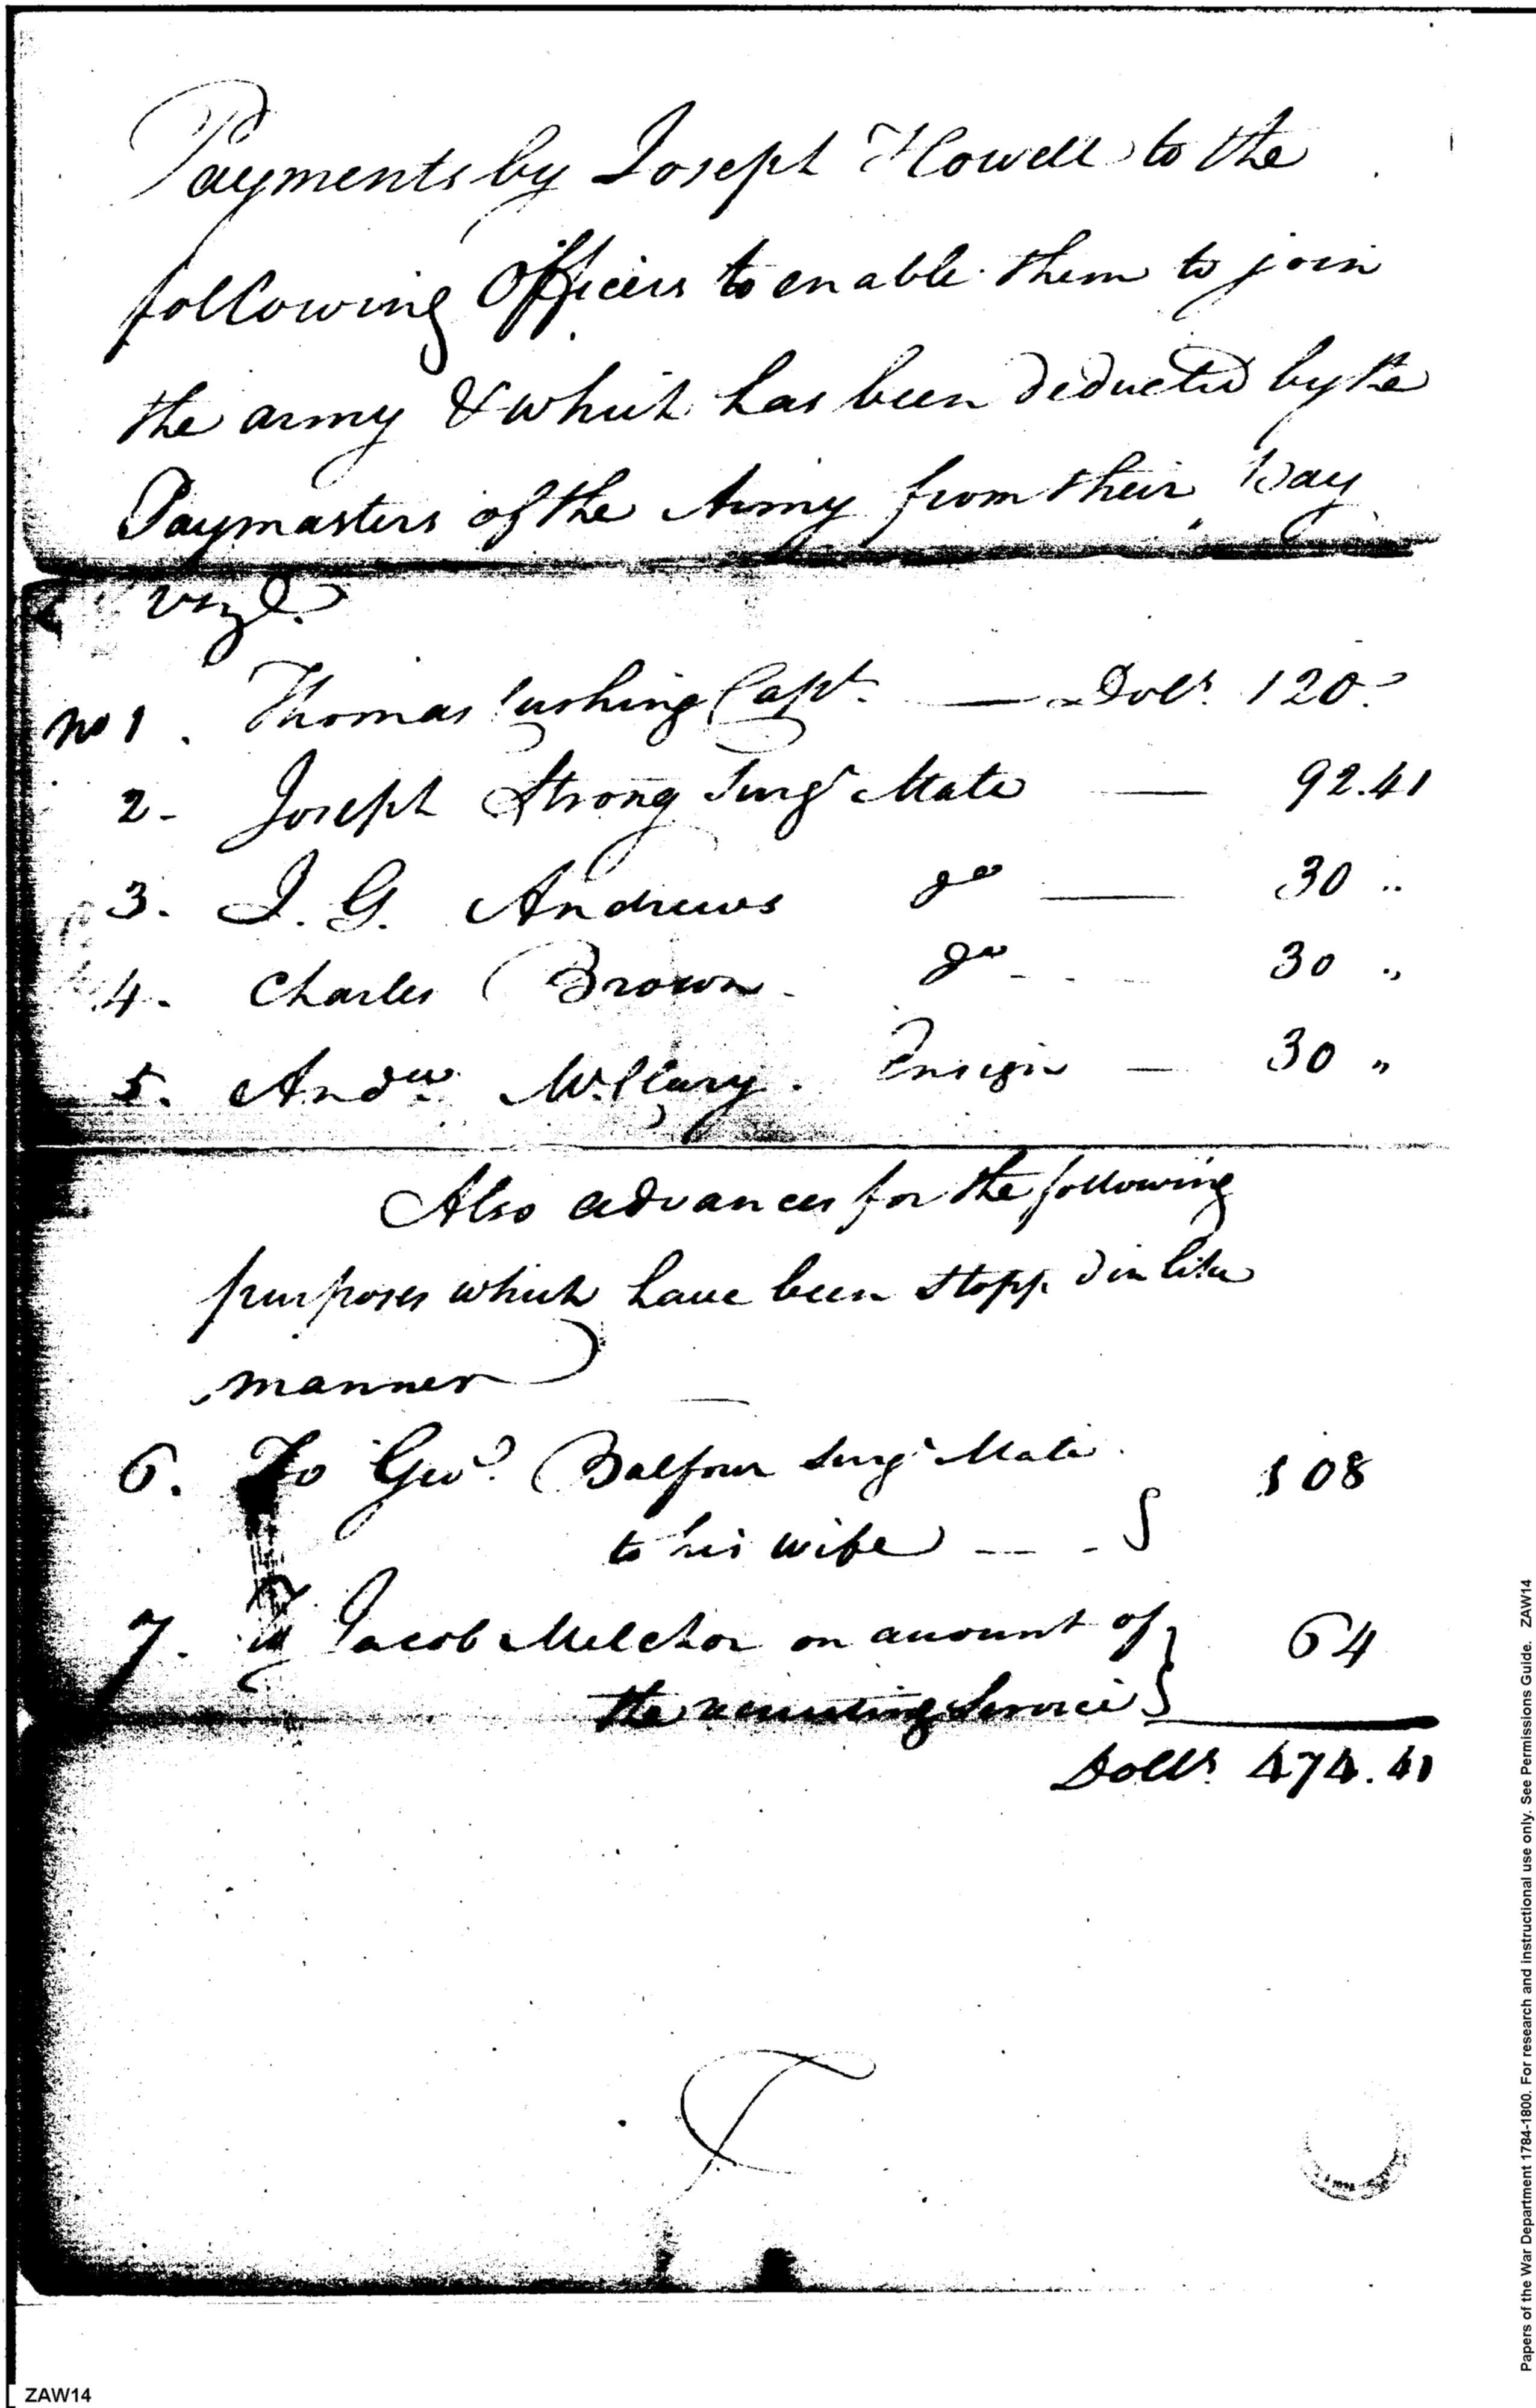 Payments by Joseph Howell to the
following Officers to enable them to join
the army & which has been deducted by the
Paymasters of the Army from their Pay
vizt.
No 1. Thomas Cushing Capt. — Dols. 120.
2- Joseph Strong Surgs Mate — 92.41
3. J. G. Andrews do — 30 ..
4. Charles Brown - do - - 30 ..
5. Andw. McClary. Ensign — 30 "
Also advances for the following
purposes which have been stopp d in like
manner —
6. To Geo. Balfour Surgs Mate 108
to his wife — - }
7. Jacob Melcher on account of } 64
the recruiting Service }
Dolls. 474.41
Papers of the War Department 1784-1800. For research and instructional use only. See Permissions Guide. ZAW14
ZAW14